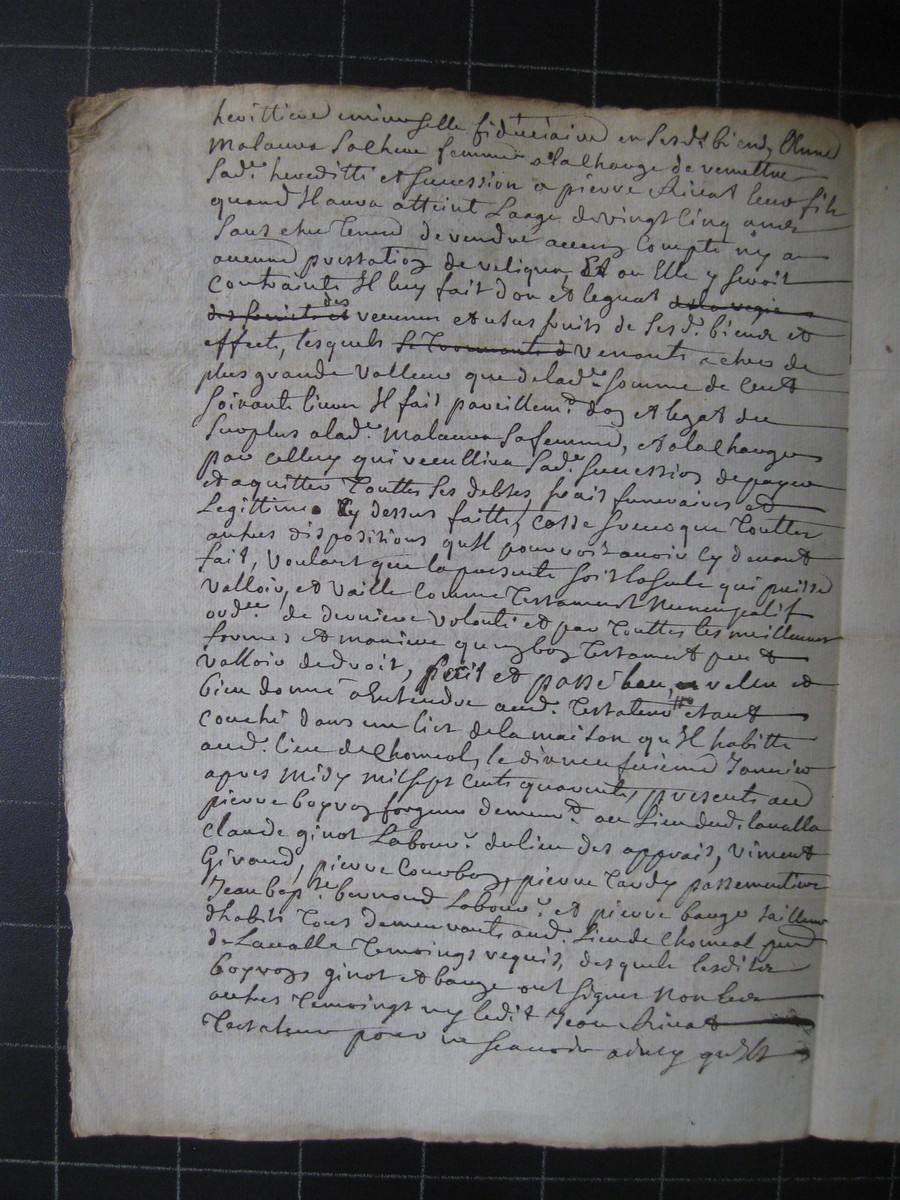 herittiere universelle fiduciaire en sesd. biens Anne
Malaura sa chere femme a la charge de remettre
sad. heredité et sucession a pierre Rivat leur fils
quand Il aura atteint Laage de vingt Cinq annes
sans etre Tenue de rendre aucung Compte ny a
aucune prestation de reliqua, Et ou Elle y seroit
Contrainte Il luy fait don et leguat
des revenus et usufruits de sesd. biens et
effects, lesquels venants a estre de
plus grande Valleur que de lad. somme de Cent
soixante livres Il fait pareillem.t don et legat du
surplus a lad. Malaura sa femme, et a la charge
par celluy qui receullira sad. sucession de payer
et aquitter Touttes ses debtes, frais funeraires et
Legittime Cy dessus faitte, Casse Revoque Touttes
autres dispositions qu'Il pourroit avoir Cy devant
fait, Voulant que la presente soit la seule qui puisse
Valloir, et Vaille Comme Testament Nuncupatif
ord.re de derniere volonté et par Touttes les meilleures
formes et maniere que bon Testament peut
valloir de droit, fait et passé leu, releu et
bien donné a Entendre aud. Testateur etant
Couché dans un lict de la maison qu'Il habitte
aud. lieu de Chomeol, le dix neufvieme Janvier
apres midy mil sept Cents quarente, presents au d
pierre boyron forgeur demeur.t au Lieu dud. lavalla
Claude ginot Labour.r du lieu des apprais, Viment
Giraud, pierre Courbon, pierre Tardy passementier
Jean bap.te bernond Labour.r et pierre bauge tailleur
dhabits Tous demeurants aud. Lieu de Chomeol par.sse
de Lavalla Temoings requis, desquels lesdits
boyron ginot et bauge ont signés Non les
autres Temoings ny ledit Jean Rivat
Testateur pour ne scavoir a du